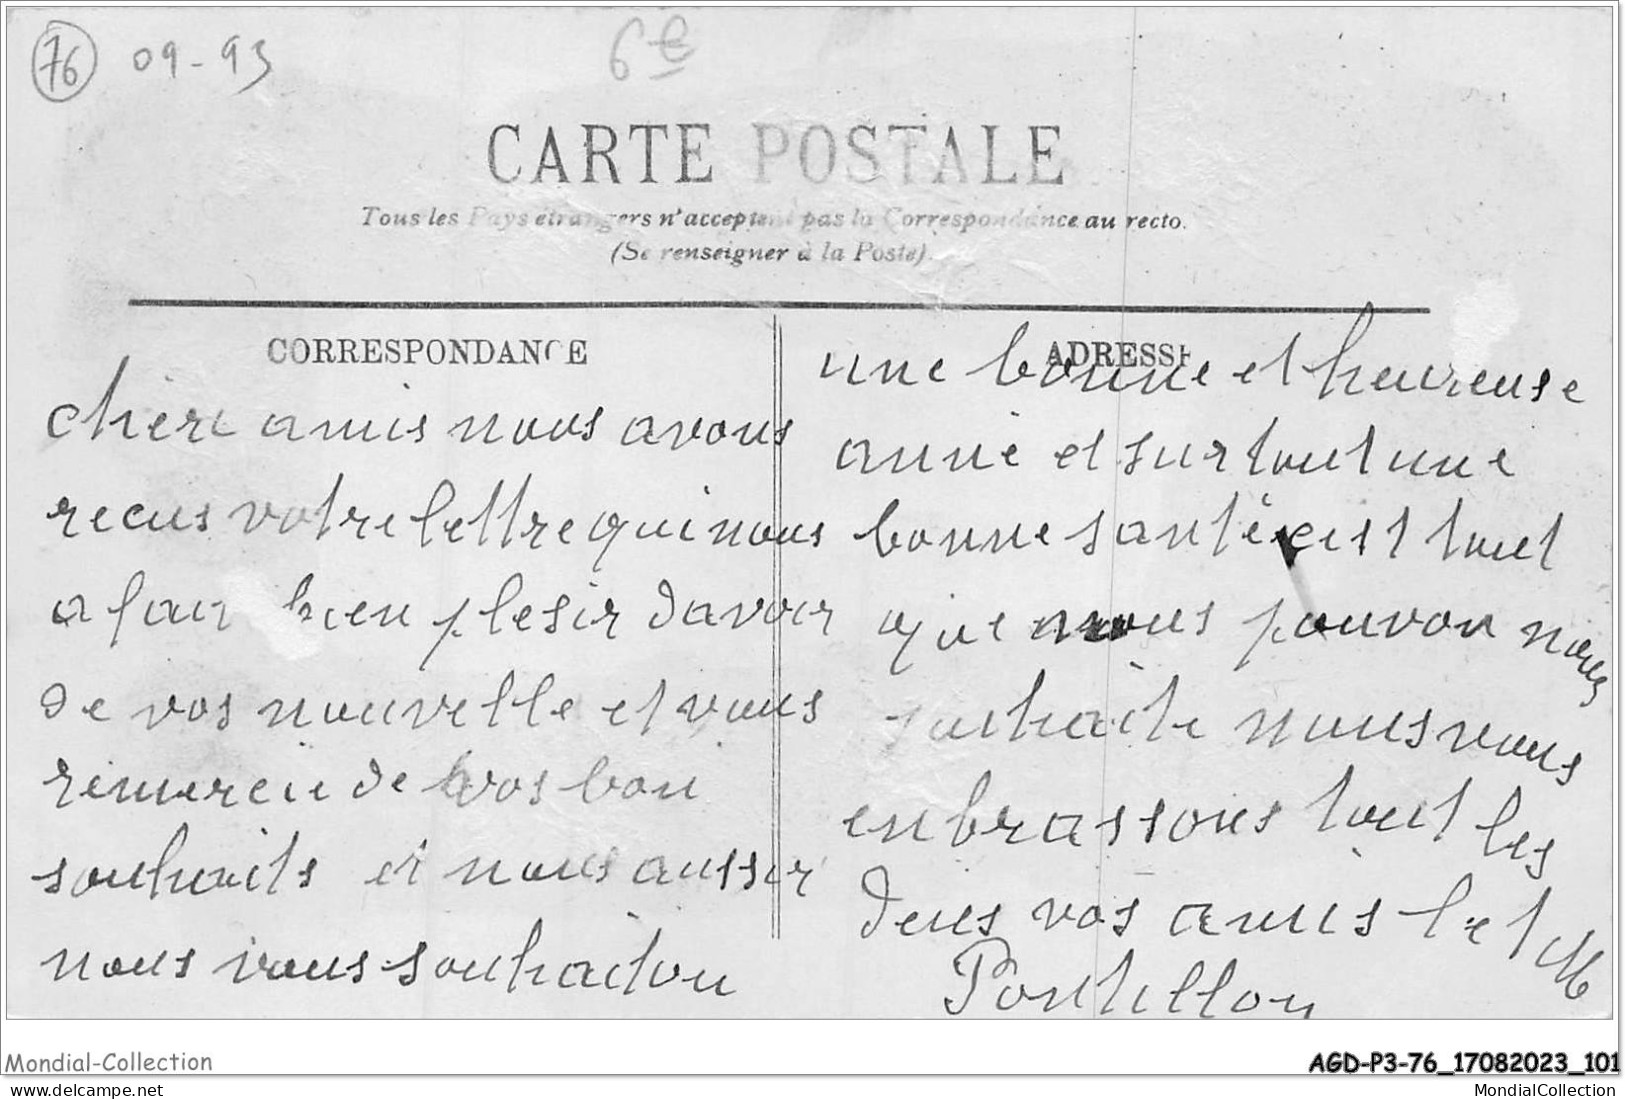 76 09-93
6e
CARTE POSTALE
Tous les Pays étrangers n'acceptent pas la Correspondance au recto.
(Se renseigner à la Poste).
CORRESPONDANCE
chère amis nous avons
recus votre lettre qui nous
a fait bien plesir davoir
de vos nouvelle et vous
remercie de vos bon
souhaits et nous aussir
nous vous souhaiton
ADRESSE
une bonne et heureuse
anné et surtout une
bonne santé cest tout
que nous pouvon nous
souhaite nous vous
enbrassons tout les
deus vos amis
Pontillon
Mondial-Collection
AGD-P3-76_17082023_101
www.delcampe.net
MondialCollection